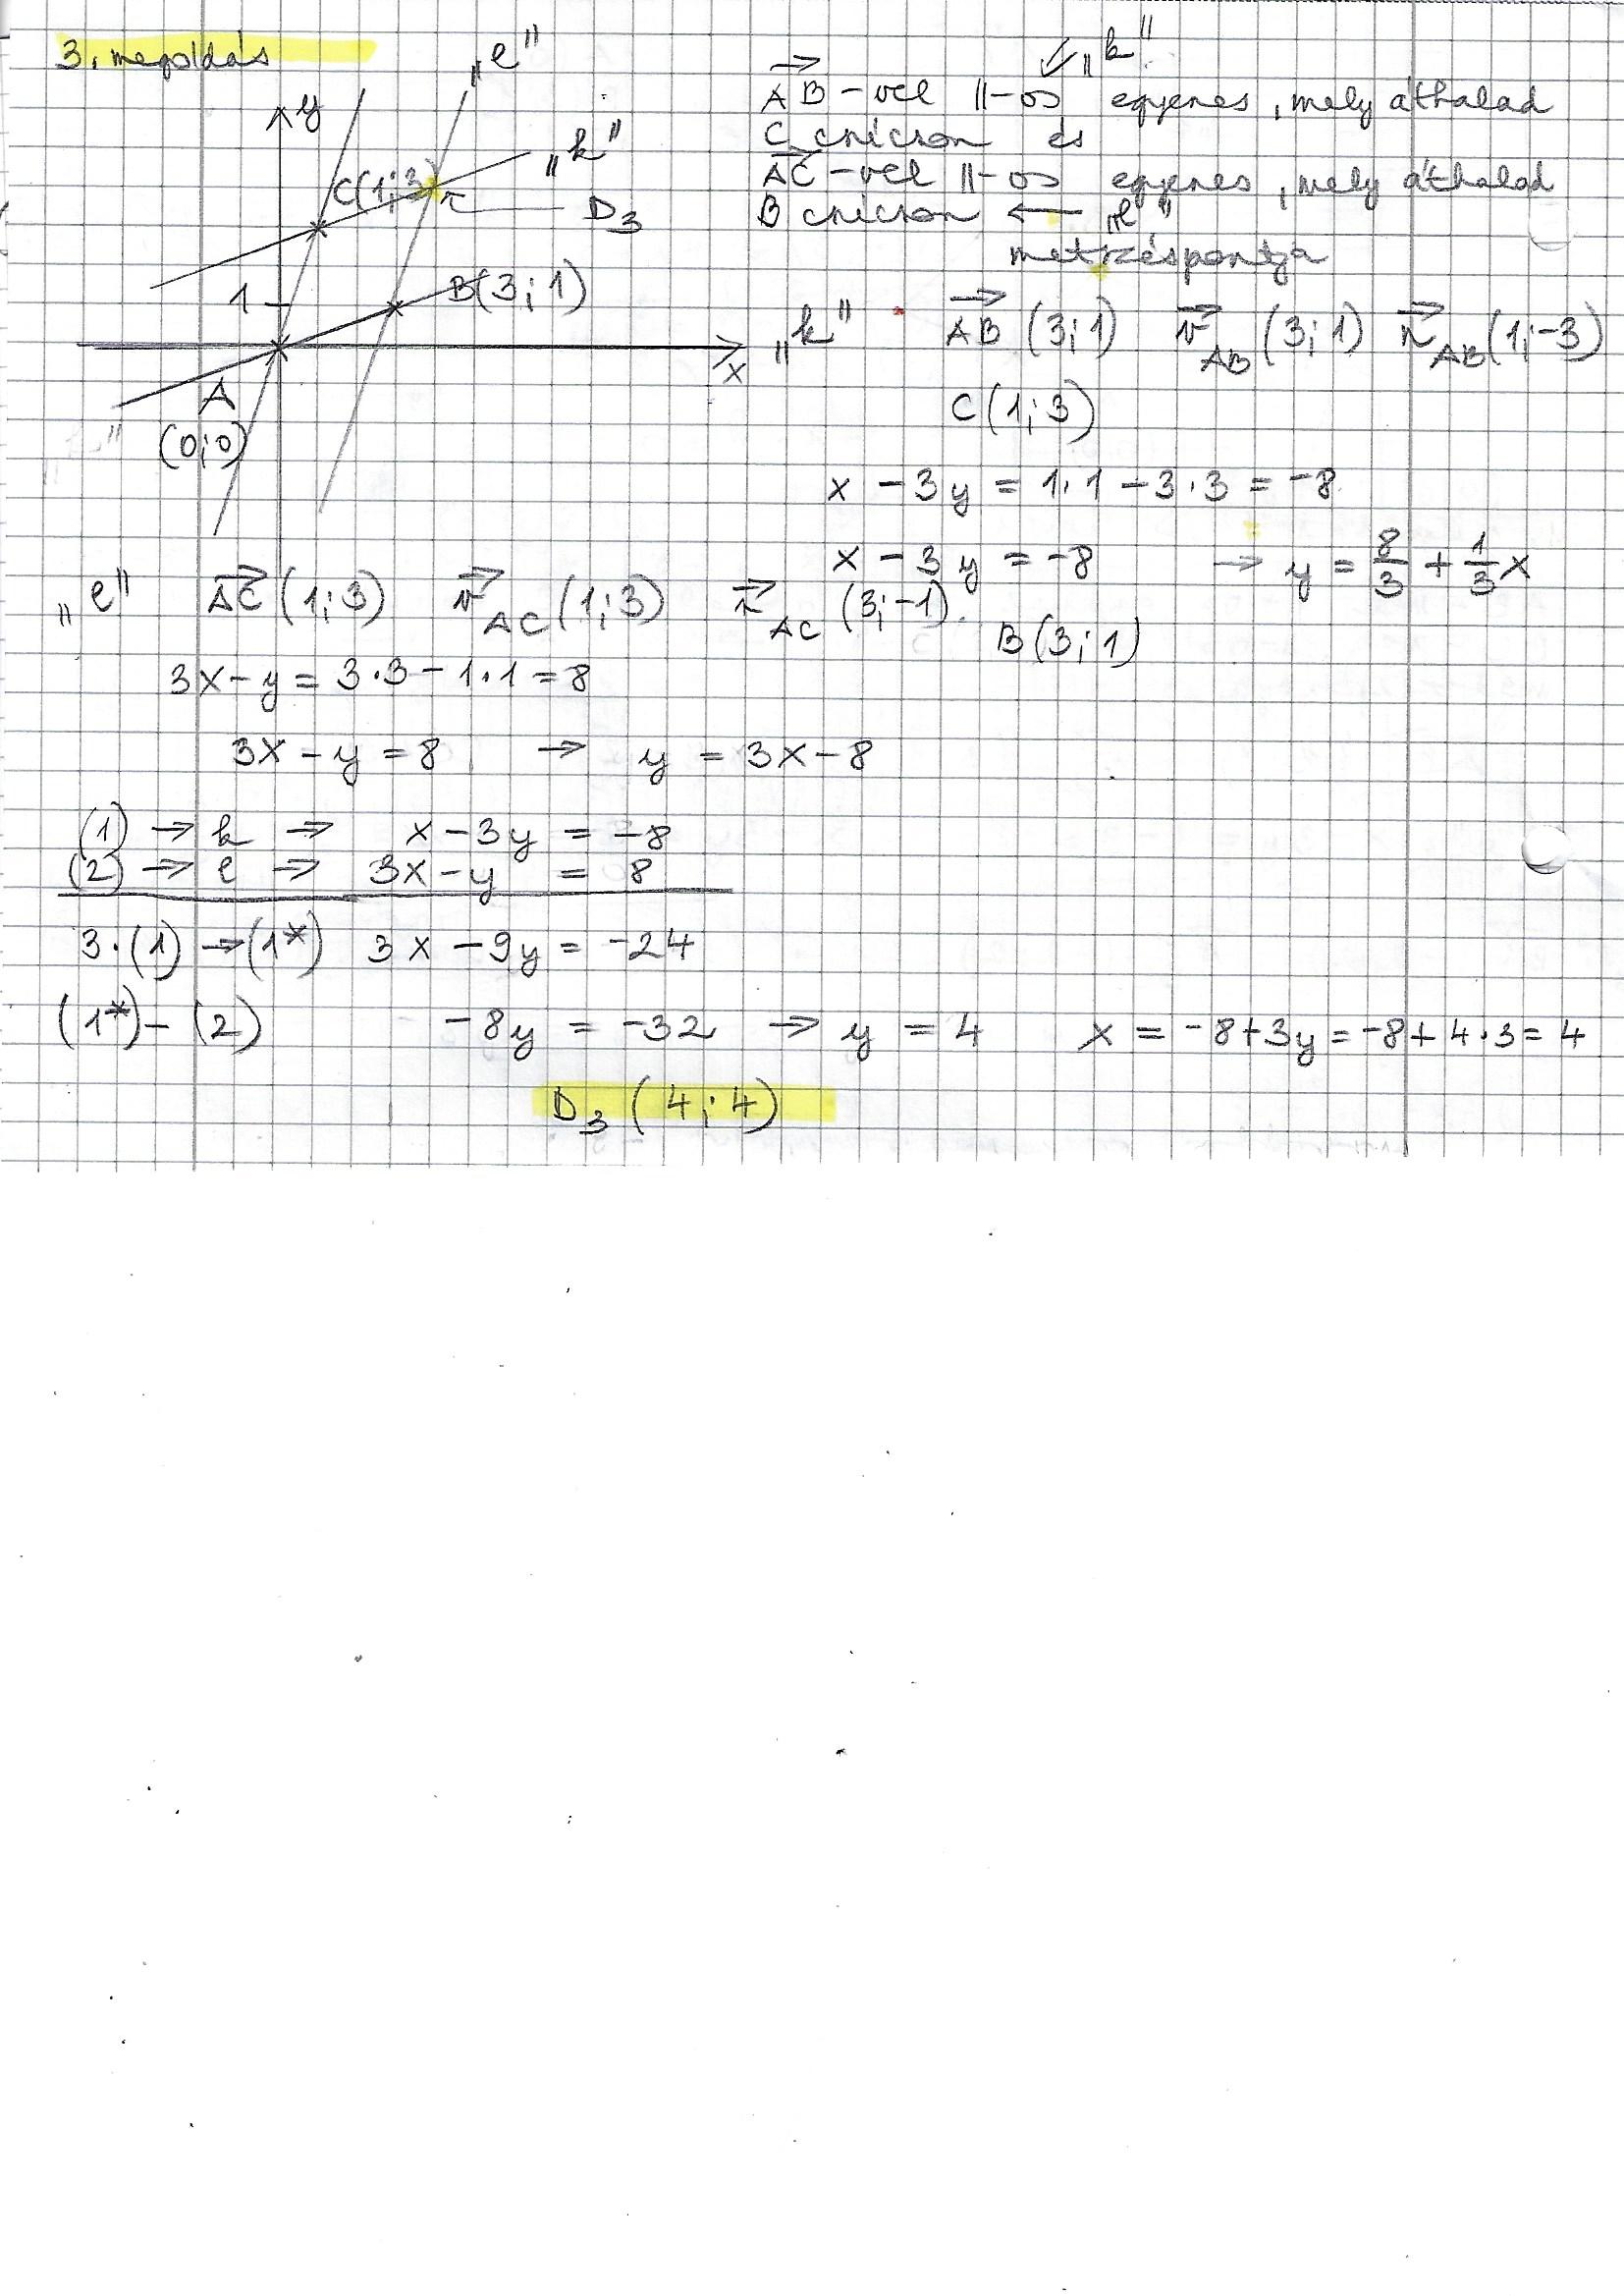 3. megoldás
„e”
y
„k”
C(1;3)
D₃
1
B(3;1)
x
A
(0;0)
„k”
AB→-vel ||-os egyenes, mely áthalad
C csúcson és
AC→-vel ||-os egyenes, mely áthalad
B csúcson ← „e”
metszéspontja
„k” AB→ (3;1) v→AB (3;1) n→AB (1;-3)
C(1;3)
x - 3y = 1·1 - 3·3 = -8
x - 3y = -8 → y = 8/3 + 1/3 x
„e” AC→ (1;3) v→AC (1;3) n→AC (3;-1) B(3;1)
3x - y = 3·3 - 1·1 = 8
3x - y = 8 → y = 3x - 8
(1) → k → x - 3y = -8
(2) → e → 3x - y = 8
3·(1) → (1*) 3x - 9y = -24
(1*) - (2) -8y = -32 → y = 4 x = -8 + 3y = -8 + 4·3 = 4
D₃ (4;4)